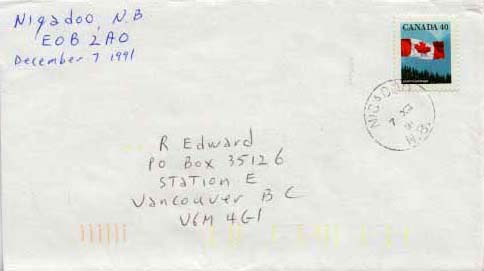 Nigadoo, N.B
E0B 2A0
December 7 1991
CANADA 40
NIGADOO
7 XII
91
N.B.
R Edward
PO Box 35126
Station E
Vancouver B C
V6M 4G1